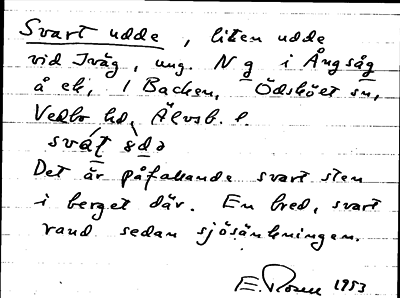 Svart udde, liten udde
vid Iväg, ung. N g i Ångsåg
å ek, 1 Backen, Ödskölt sn,
Vedbo hd, Älvsb. l.
Det är påfallande svart sten
i berget där. En bred, svart
rand sedan sjösänkningen.
E. Rosell 1953